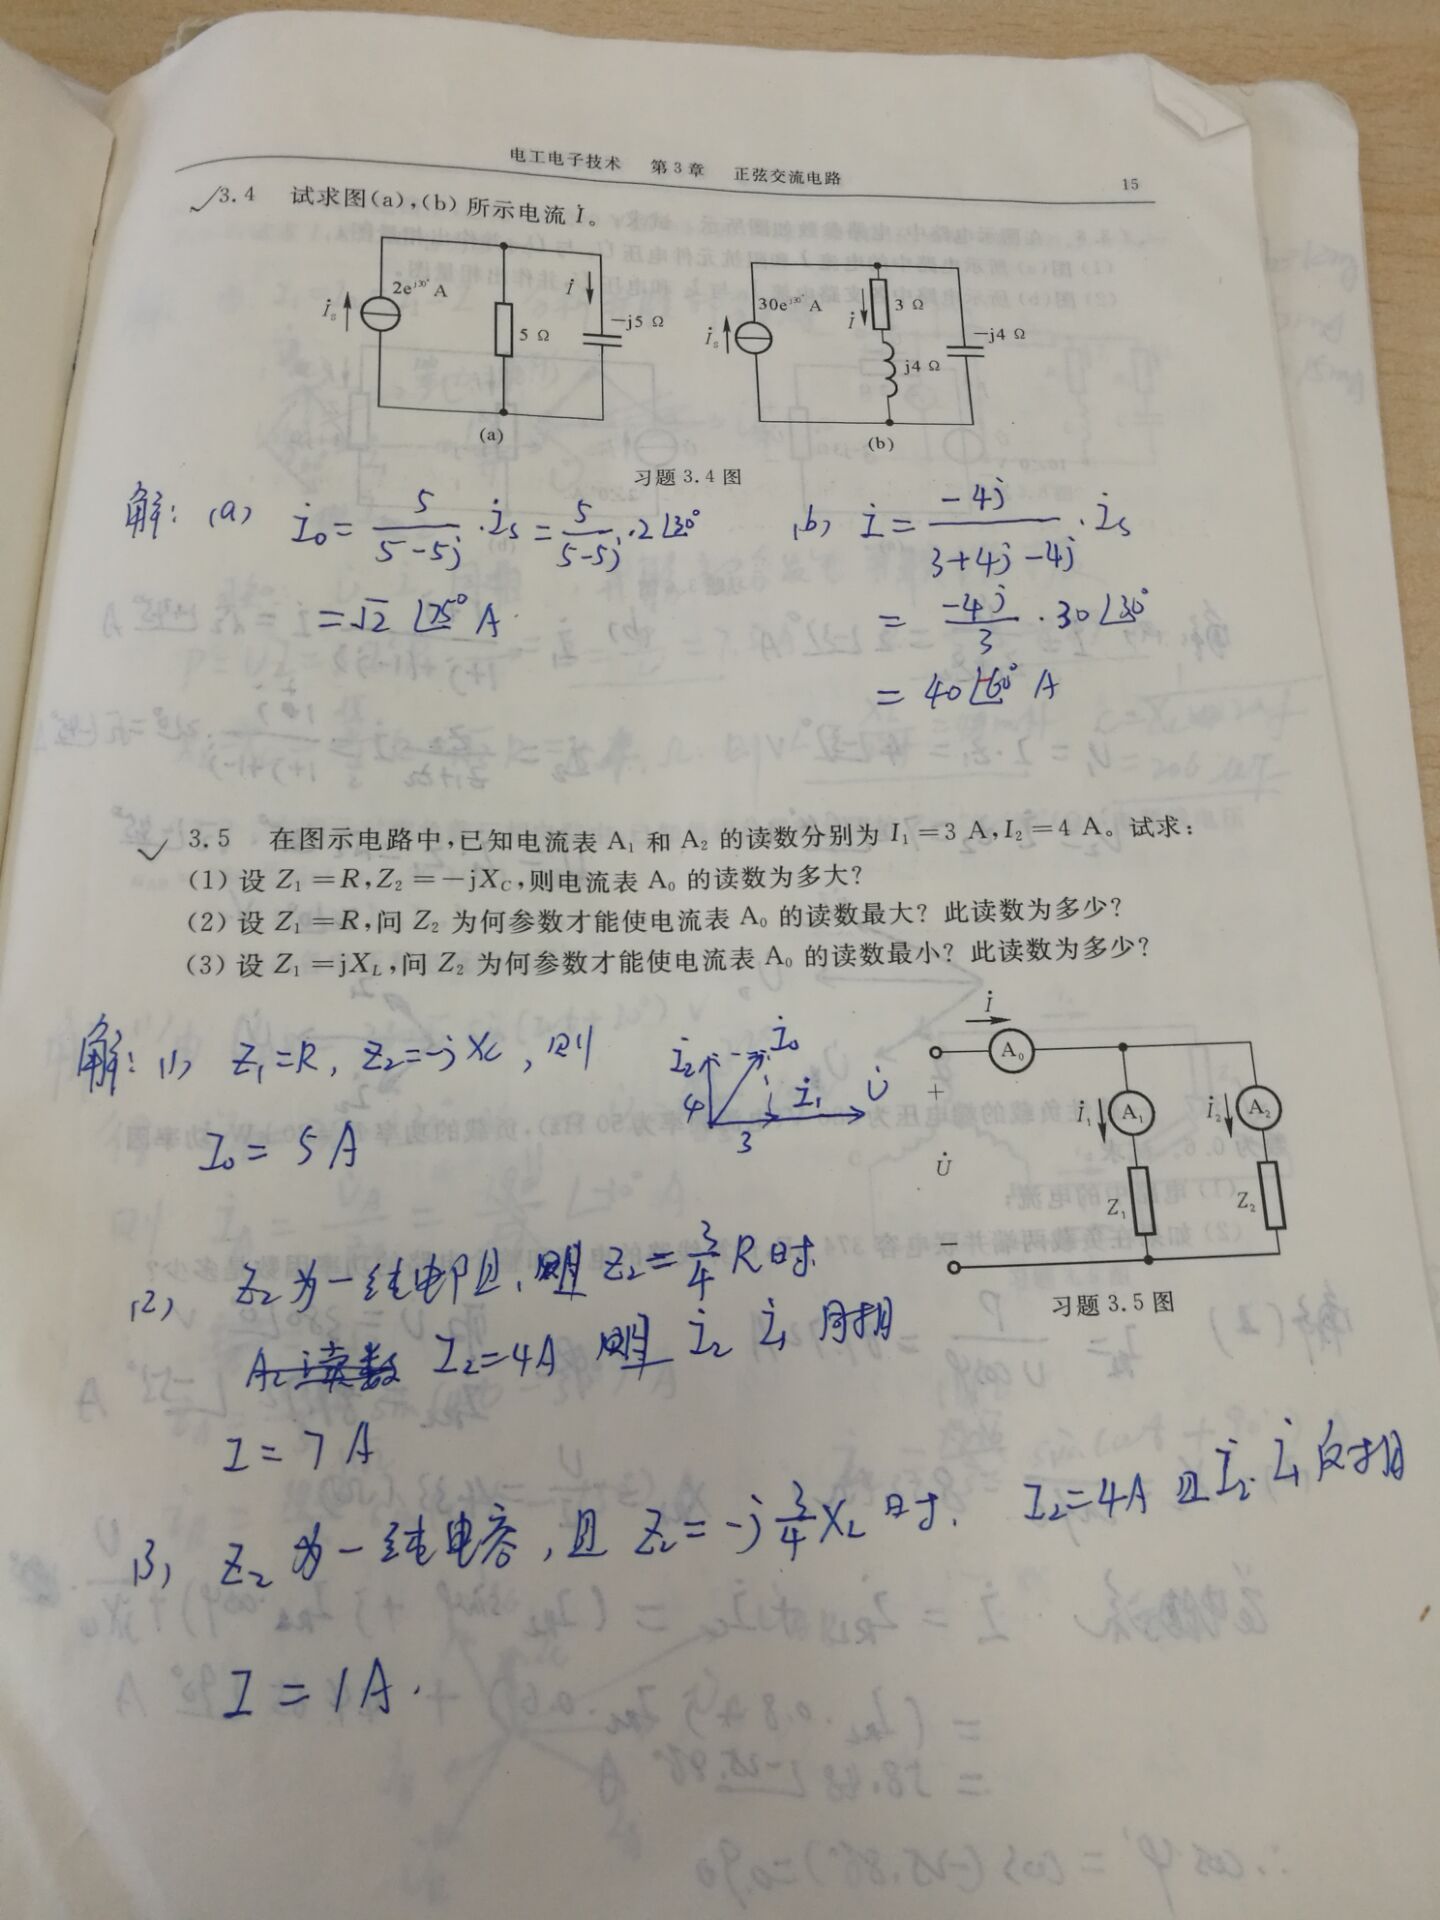 电工电子技术 第3章 正弦交流电路 15
✓3.4 试求图(a),(b)所示电流İ。
İs 2e^{j30°}A 5 Ω İ -j5 Ω
(a)
İs 30e^{j30°}A İ 3 Ω j4 Ω -j4 Ω
(b)
习题 3.4 图
解:(a) İ₀ = 5/(5-5j) · İs = 5/(5-5j) · 2∠30°
= √2 ∠75° A.
(b) İ = -4j/(3+4j-4j) · İs
= -4j/3 · 30∠30°
= 40∠-60° A
✓3.5 在图示电路中,已知电流表 A₁ 和 A₂ 的读数分别为 I₁=3 A,I₂=4 A。试求:
(1) 设 Z₁=R,Z₂=-jX_C,则电流表 A₀ 的读数为多大?
(2) 设 Z₁=R,问 Z₂ 为何参数才能使电流表 A₀ 的读数最大? 此读数为多少?
(3) 设 Z₁=jX_L,问 Z₂ 为何参数才能使电流表 A₀ 的读数最小? 此读数为多少?
解:(1) Z₁=R, Z₂=-jXc,则
I₀ = 5A
İ₂ İ₀ 4 3 İ₁ U̇
İ A₀ + U̇ - İ₁ A₁ Z₁ İ₂ A₂ Z₂
习题 3.5 图
(2) Z₂为一纯电阻, 且 Z₂=3/4 R时.
A₂读数 I₂=4A 且 İ₂ İ₁ 同相
I=7A
(3) Z₂为一纯电容,且 Z₂=-j3/4 X_L 时. I₂=4A 且 İ₂ İ₁ 反相
I=1A.